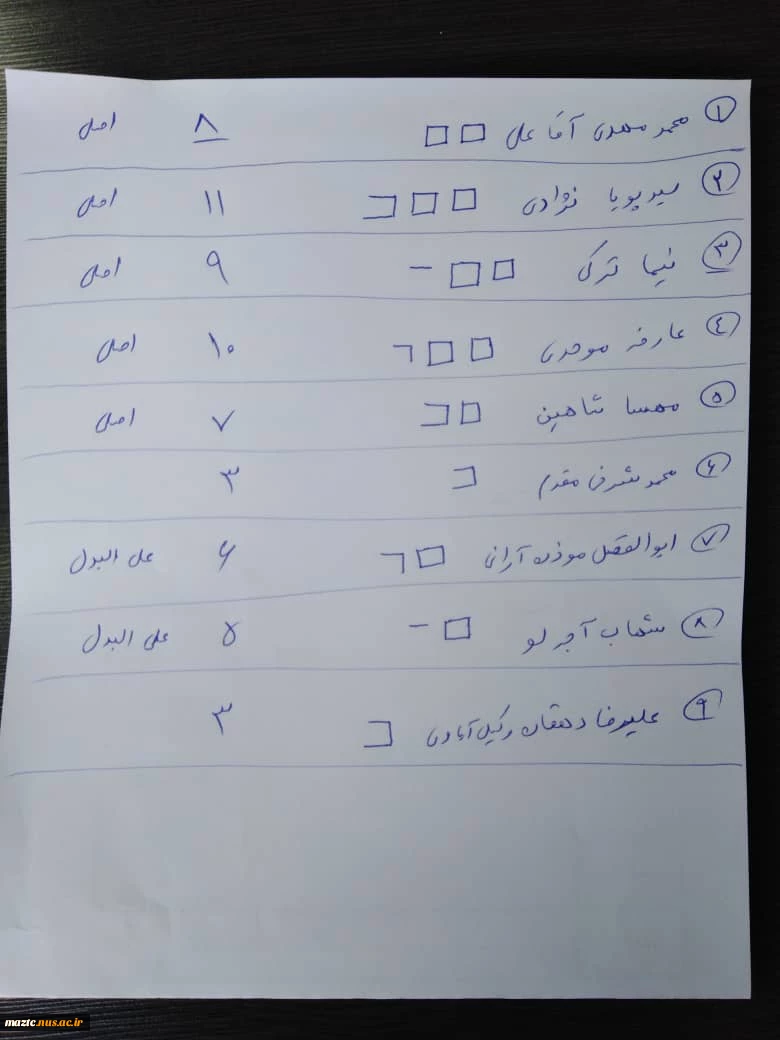 ۱ محمد مهدی آقا علی ۸ اصلی
۲ سید پویا نژادی ۱۱ اصلی
۳ نیما ترکی ۹ اصلی
۴ عارفه موحدی ۱۰ اصلی
۵ مهسا شاهین ۷ اصلی
۶ محمد شرفی مقدم ۳
۷ ابوالفضل موذن آرانی ۶ علی البدل
۸ شهاب آجرلو ۵ علی البدل
۹ علیرضا دهقان وکیل آبادی ۳
maztc.nus.ac.ir